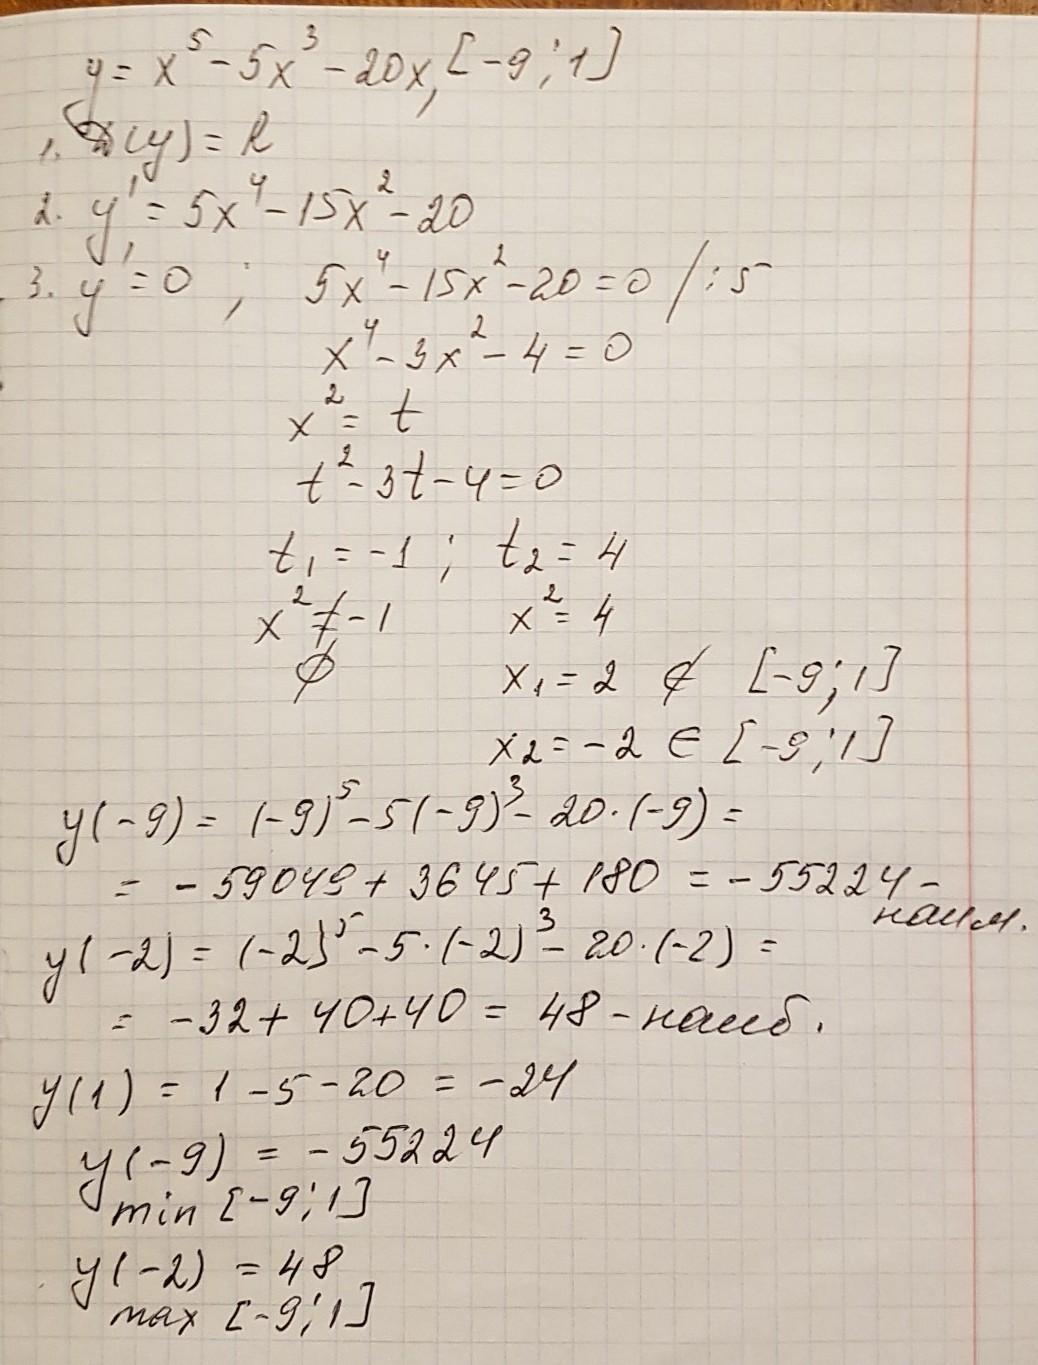 y = x⁵ - 5x³ - 20x, [-9; 1]
1. D(y) = R
2. y' = 5x⁴ - 15x² - 20
3. y' = 0 ; 5x⁴ - 15x² - 20 = 0 / : 5
x⁴ - 3x² - 4 = 0
x² = t
t² - 3t - 4 = 0
t₁ = -1 ; t₂ = 4
x² ≠ -1 x² = 4
∅ x₁ = 2 ∉ [-9; 1]
x₂ = -2 ∈ [-9; 1]
y(-9) = (-9)⁵ - 5(-9)³ - 20·(-9) =
= -59049 + 3645 + 180 = -55224 -
наим.
y(-2) = (-2)⁵ - 5·(-2)³ - 20·(-2) =
= -32 + 40 + 40 = 48 - наиб.
y(1) = 1 - 5 - 20 = -24
y(-9) = -55224
min [-9; 1]
y(-2) = 48
max [-9; 1]